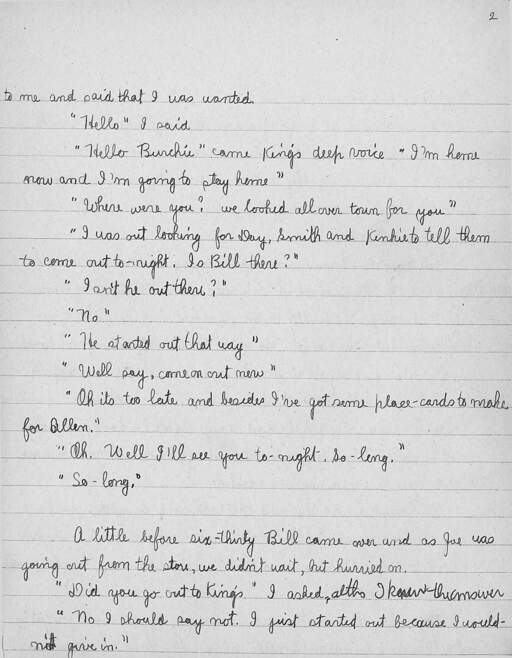 2
to me and said that I was wanted.
"Hello" I said
"Hello Burchie" came King's deep voice "I'm home
now and I'm going to stay home"
"Where were you? we looked all over town for you"
"I was out looking for Day, Smith and Kinkie to tell them
to come out to-night. Is Bill there?"
"Isn't he out there?"
"No"
"He started out that way"
"Well say, come on out now"
"Oh its too late and besides I've got some place-cards to make
for Allen."
"Oh. Well I'll see you to-night. So-long."
"So-long."
A little before six-thirty Bill came over and as Joe was
going out from the store, we didn't wait, but hurried on.
"Did you go out to King's" I asked, altho I knew the answer
"No I should say not. I just started out because I would-
n't give in."